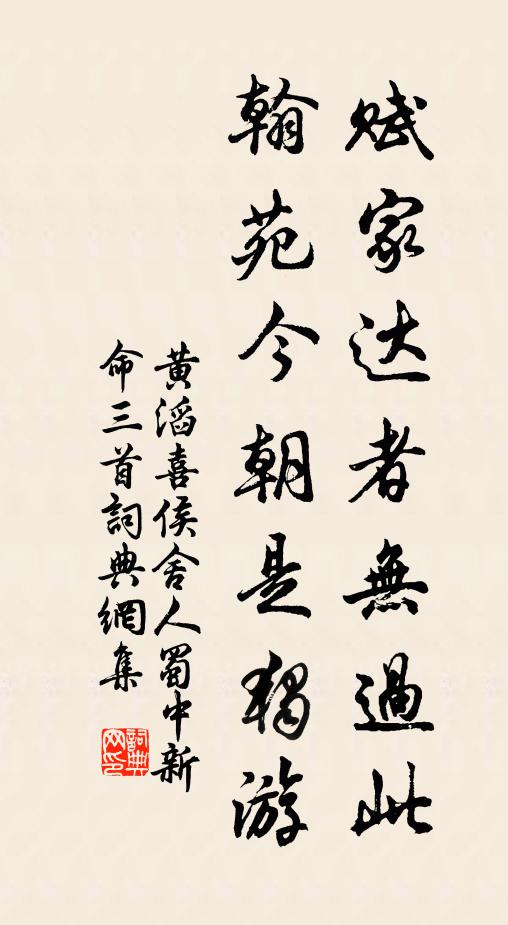 赋家达者無過此
翰苑今朝是独游
黄滔喜侯舍人蜀中新
命三首詞典網集
詞典网印